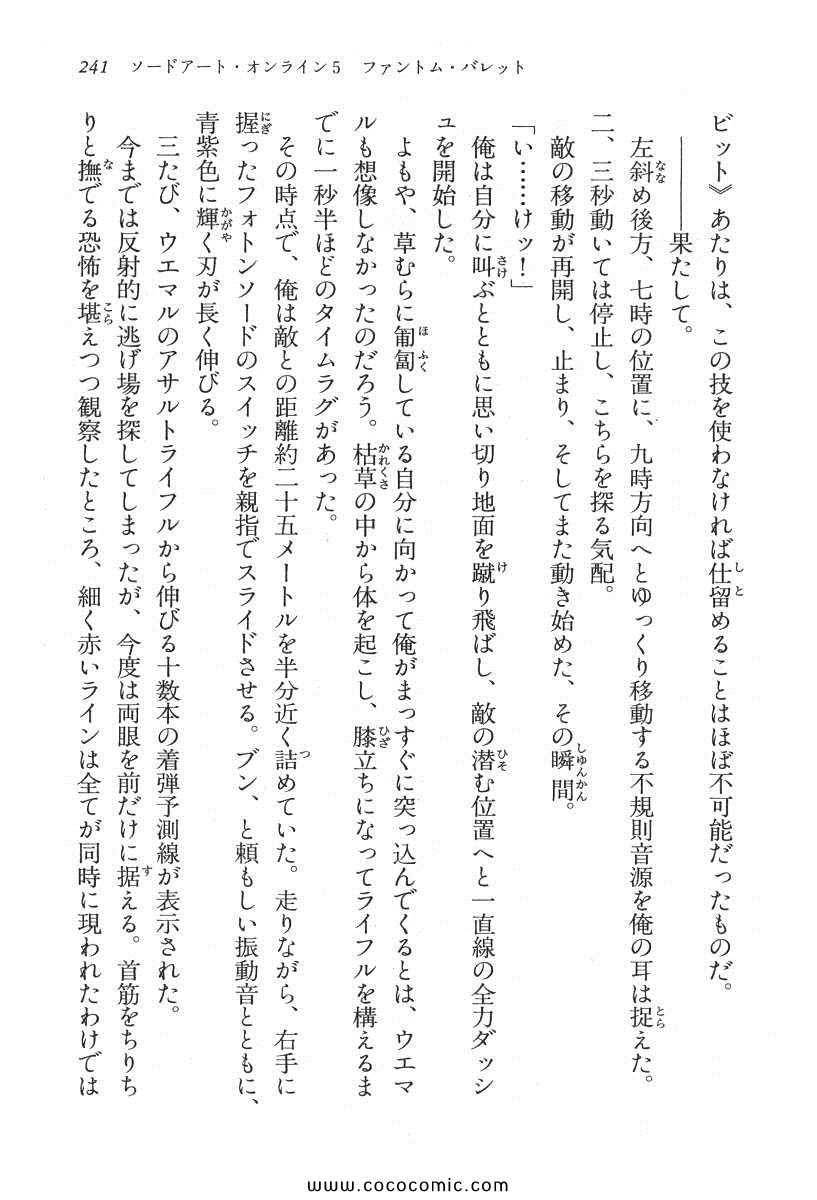 241 ソードアート・オンライン5 ファントム・バレット
ビット》あたりは、この技を使わなければ仕留めることはほぼ不可能だったものだ。
――果たして。
左斜め後方、七時の位置に、九時方向へとゆっくり移動する不規則音源を俺の耳は捉えた。
二、三秒動いては停止し、こちらを探る気配。
敵の移動が再開し、止まり、そしてまた動き始めた、その瞬間。
「い……けッ！」
俺は自分に叫ぶとともに思い切り地面を蹴り飛ばし、敵の潜む位置へと一直線の全力ダッシ
ュを開始した。
よもや、草むらに匍匐している自分に向かって俺がまっすぐに突っ込んでくるとは、ウエマ
ルも想像しなかったのだろう。枯草の中から体を起こし、膝立ちになってライフルを構えるま
でに一秒半ほどのタイムラグがあった。
その時点で、俺は敵との距離約二十五メートルを半分近く詰めていた。走りながら、右手に
握ったフォトンソードのスイッチを親指でスライドさせる。ブン、と頼もしい振動音とともに、
青紫色に輝く刃が長く伸びる。
三たび、ウエマルのアサルトライフルから伸びる十数本の着弾予測線が表示された。
今までは反射的に逃げ場を探してしまったが、今度は両眼を前だけに据える。首筋をちりち
りと撫でる恐怖を堪えつつ観察したところ、細く赤いラインは全てが同時に現われたわけでは
www.cococomic.com